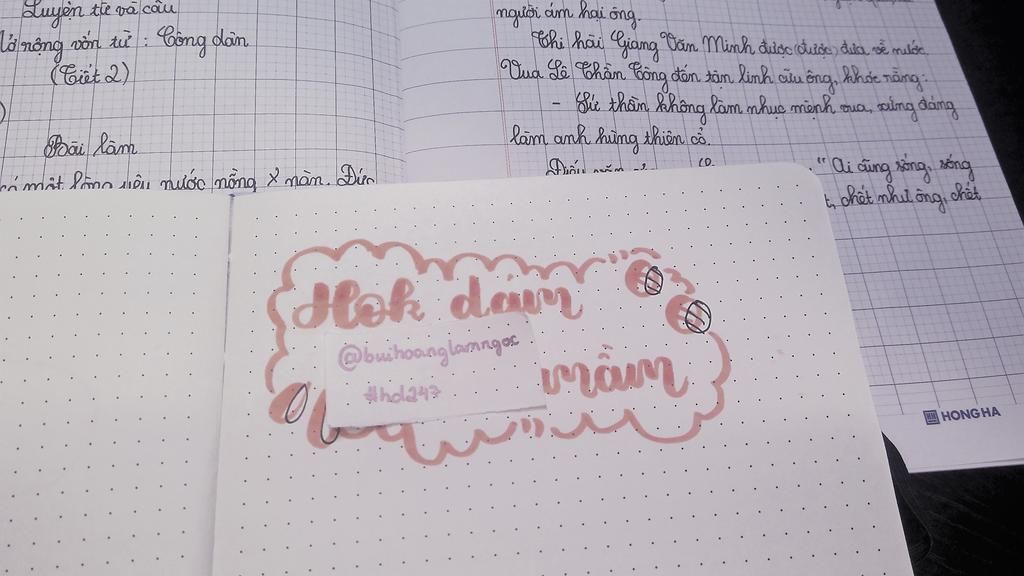 Luyện từ và câu
Mở rộng vốn từ : Công dân
(Tiết 2)
Bài làm
có một lòng yêu nước nồng nàn. Đức
người ám hại ông.
Thi hài Giang Văn Minh được (được) đưa về nước.
Vua Lê Thần Tông đến tận linh cữu ông, khóc rằng:
- Sứ thần không làm nhục mệnh vua, xứng đáng
làm anh hùng thiên cổ.
Điếu văn
"Ai cũng sống, sống
chết như ông, chết
Hok dám
@buihoanglamngoc
#hd247
mầm
HONG HA